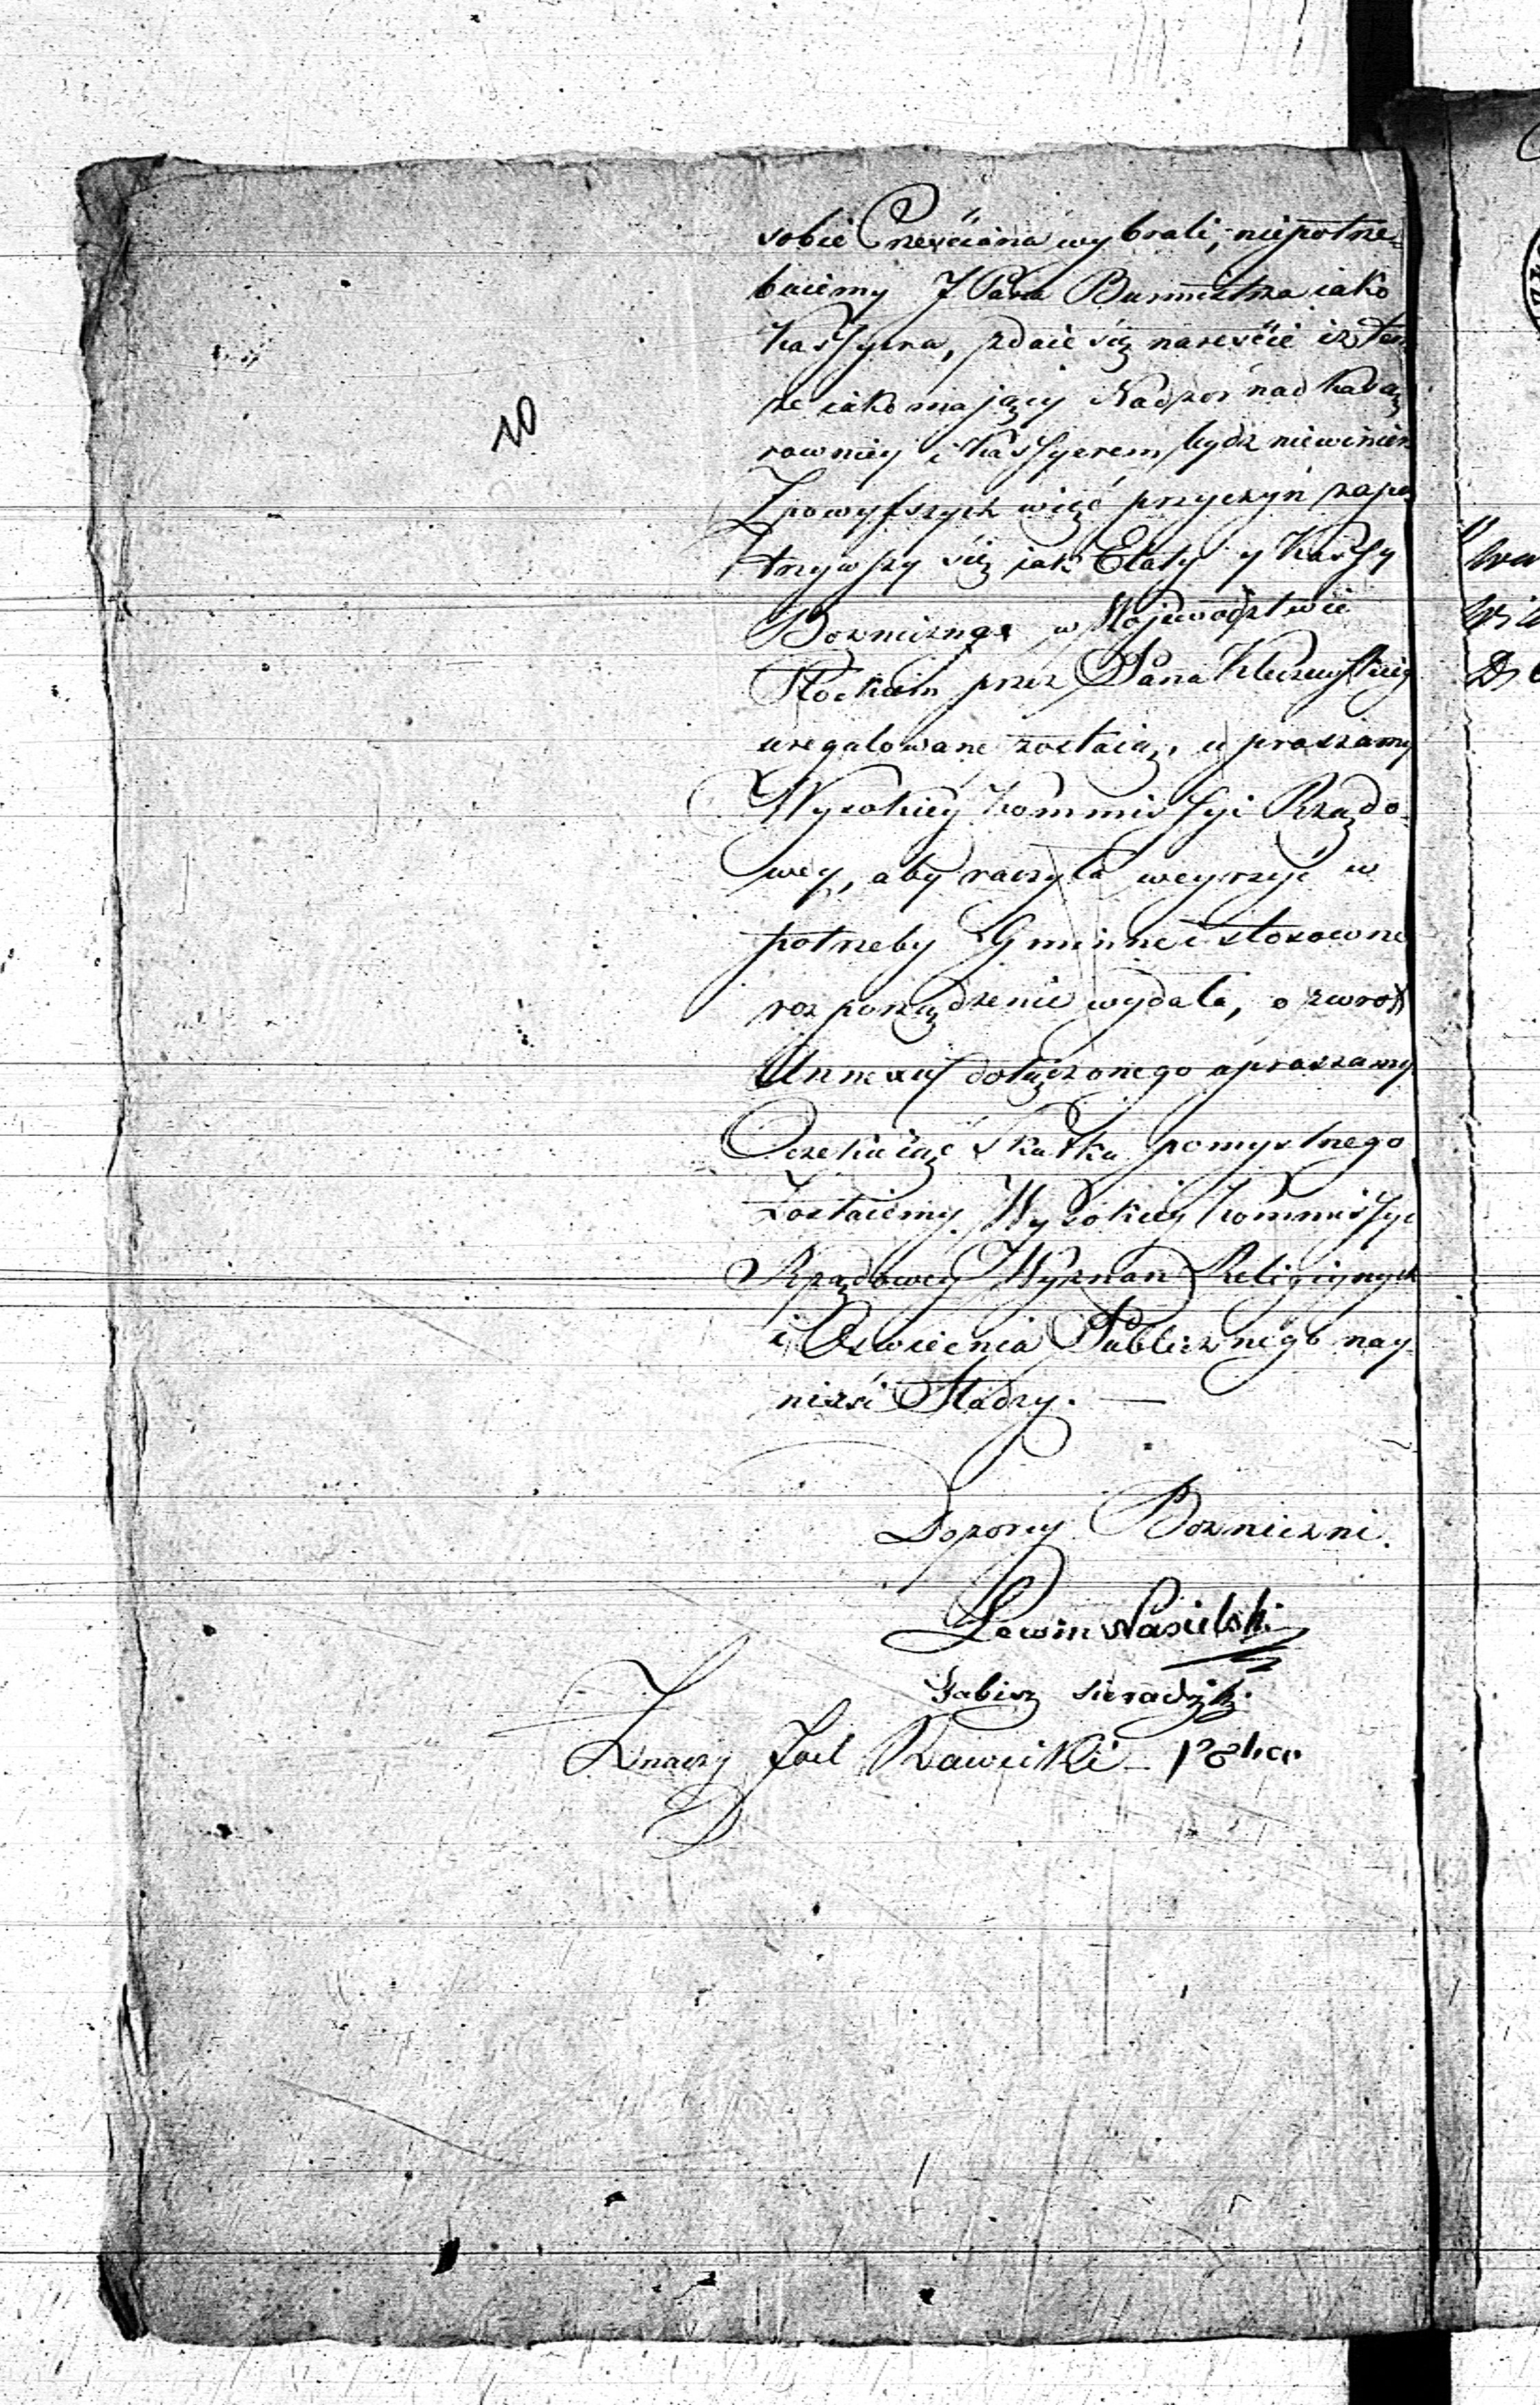 10
sobie Cneściana wybrali, niepotrze=
buiemy J Pana Burmistrza iako
Kassyera, zdaie się nareście iż ten
że iako maiący Nadzor nad Kassą
rowniey i Kassyerem bydz niewinien
Z powyższych więc przyczyn zapa
trzywszy się jak Etaty y Kassy
Bozniczne w Wojewodztwie
Płockim przez Pana
uregulowane zostaią, upraszamy
Wysokiey Kommissyi Rządo-
wey, aby raczyła weyrzyć w
potrzeby Gminne i stosowne
rozporządzenie wydała, o zwrot
Annexu dołączonego upraszamy
Oczekuiąc skutku pomyslnego
Zostaiemy Wysokiey Kommissyi
Rządowey Wyznan Religiynych
i Oswiecenia Publicznego nay
niżsi Słudzy. —
Dozorcy Bozniczni.
Lewin Nasielski
Sieradzki
Znaczy Joel Rawicki -